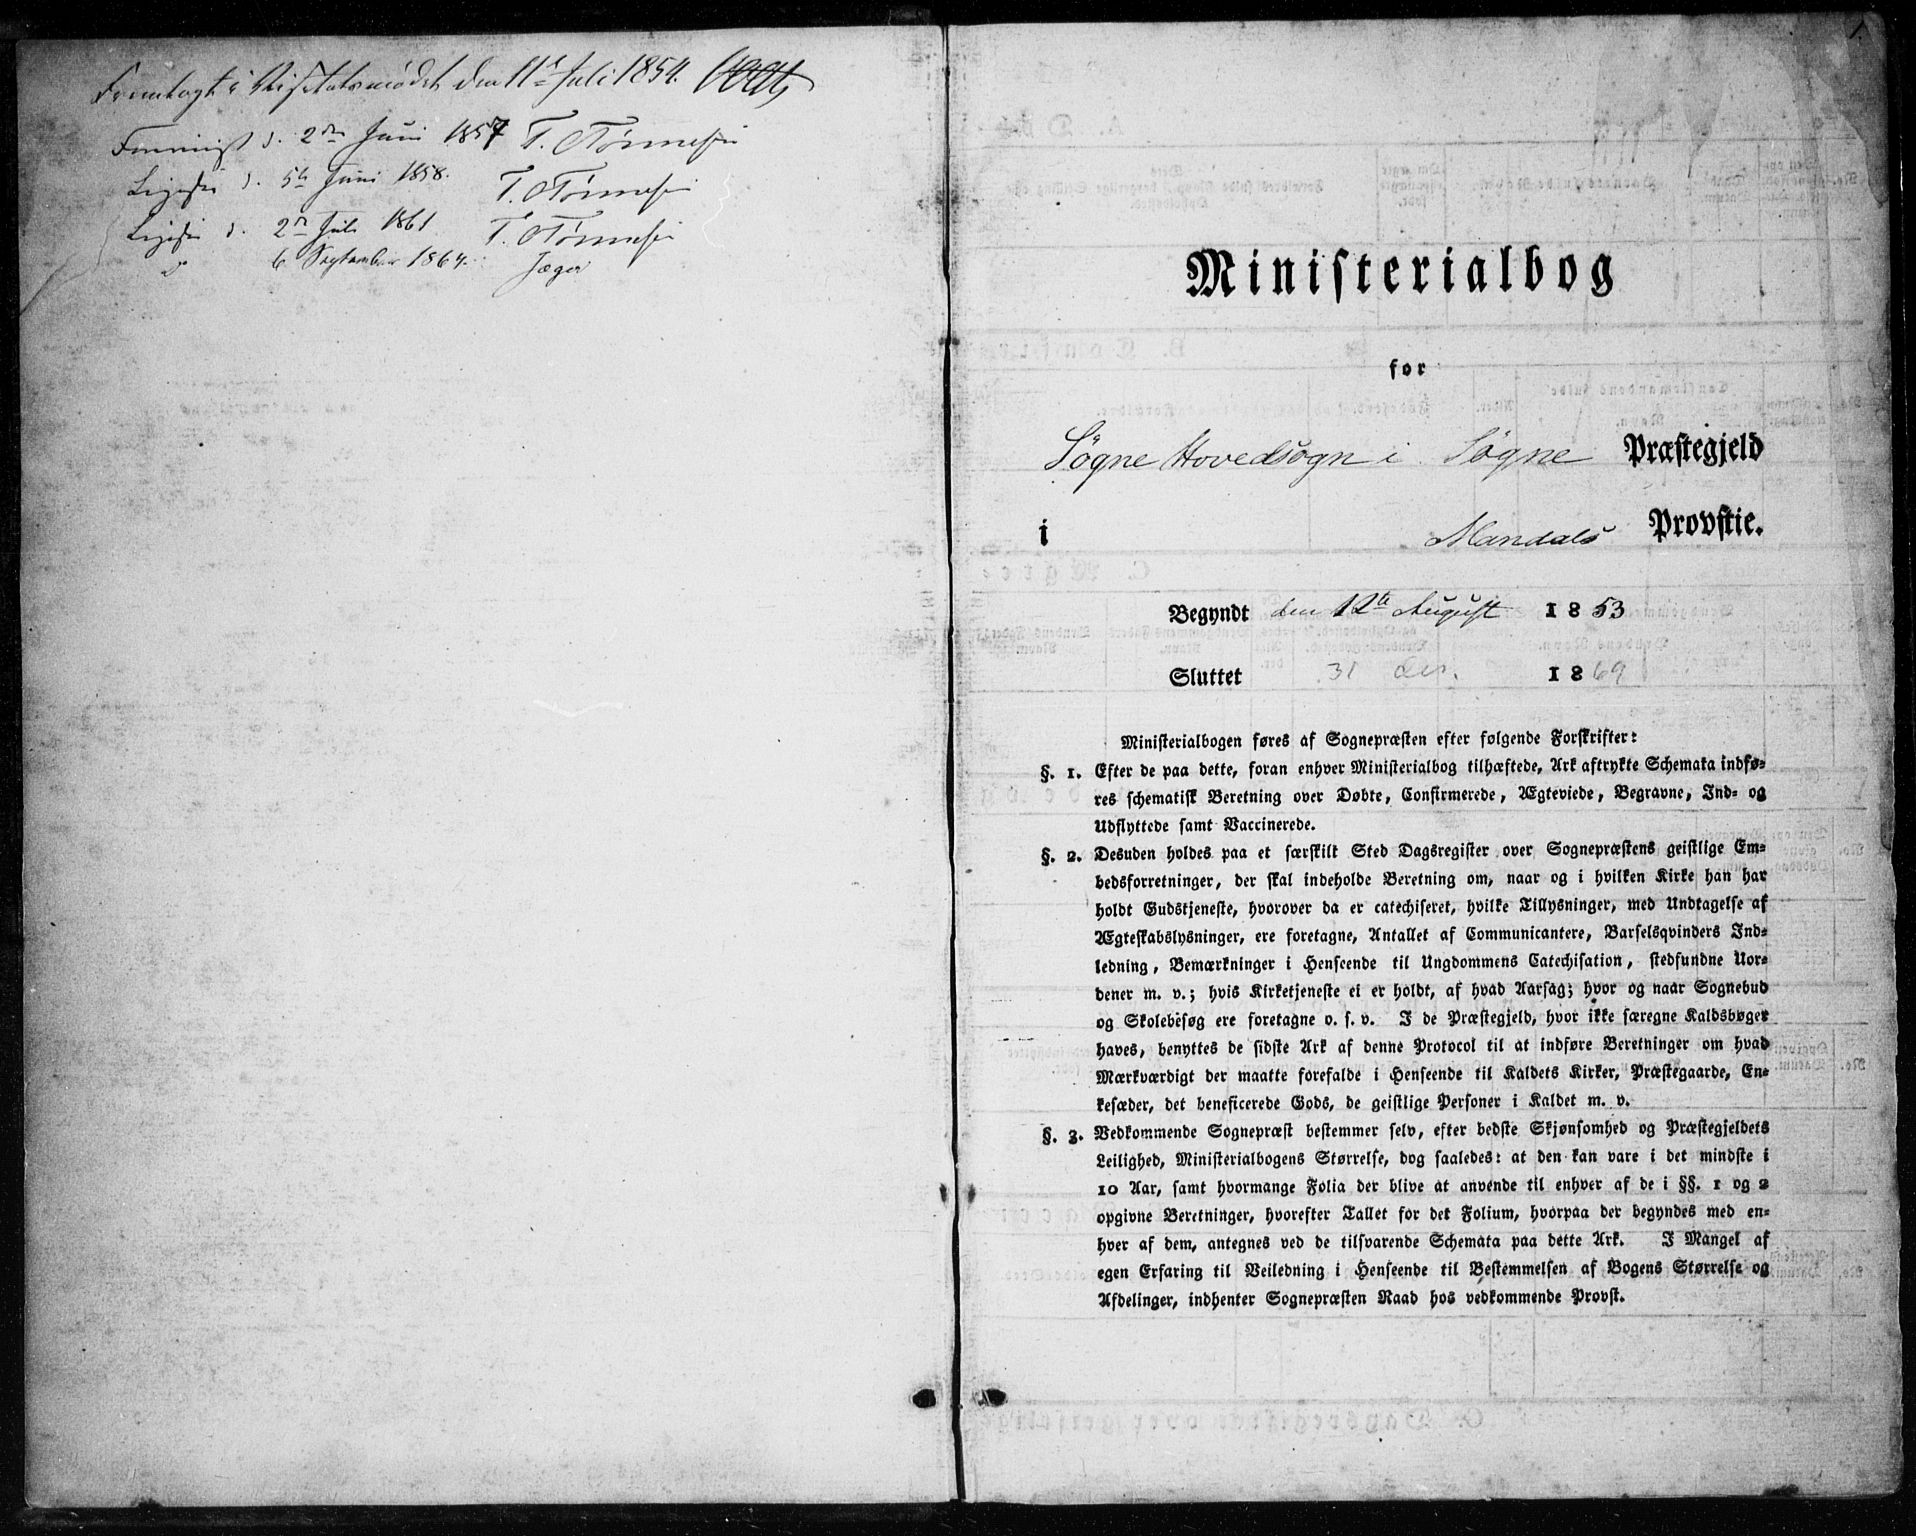 Fremlagt i Visitatsmødet den 11te Juli 1854.
Fremvist d. 2den Juni 1857 T. Tønnesen
Ligesaa d. 5te Juni 1858. T. Tønnesen
Ligesaa d. 2den Juli 1861 T. Tønnesen
6 September 1864. Jæger
1.
Ministerialbog
for
Søgne Hovedsogn i Søgne Præstegjeld
i Mandals Provstie.
Begyndt den 12te August 1853
Sluttet 31 Des. 1869
Ministerialbogen føres af Sognepræsten efter følgende Forskrifter:
§. 1. Efter de paa dette, foran enhver Ministerialbog tilhæftede, Ark aftrykte Schemata indfø-
res schematisk Beretning over Døbte, Confirmerede, Ægteviede, Begravne, Ind- og
Udflyttede samt Vaccinerede.
§. 2. Desuden holdes paa et særskilt Sted Dagsregister over Sognepræstens geistlige Em-
bedsforretninger, der skal indeholde Beretning om, naar og i hvilken Kirke han har
holdt Gudstjeneste, hvorover da er catechiseret, hvilke Tillysninger, med Undtagelse af
Ægteskabslysninger, ere foretagne, Antallet af Communicantere, Barselsqvinders Ind-
ledning, Bemærkninger i Henseende til Ungdommens Catechisation, stedfundne Uor-
dener m. v.; hvis Kirketjeneste ei er holdt, af hvad Aarsag; hvor og naar Sognebud
og Skolebesøg ere foretagne o. s. v. I de Præstegjeld, hvor ikke særegne Kaldsbøger
haves, benyttes de sidste Ark af denne Protocol til at indføre Beretninger om hvad
Mærkværdigt der maatte forefalde i Henseende til Kaldets Kirker, Præstegaarde, En-
kesæder, det beneficerede Gods, de geistlige Personer i Kaldet m. v.
§. 3. Vedkommende Sognepræst bestemmer selv, efter bedste Skjønsomhed og Præstegjeldets
Leilighed, Ministerialbogens Størrelse, dog saaledes: at den kan vare i det mindste i
10 Aar, samt hvormange Folia der blive at anvende til enhver af de i §§. 1 og 2
opgivne Beretninger, hvorefter Tallet for det Folium, hvorpaa der begyndes med en-
hver af dem, antegnes ved de tilsvarende Schemata paa dette Ark. I Mangel af
egen Erfaring til Veiledning i Henseende til Bestemmelsen af Bogens Størrelse og
Afdelinger, indhenter Sognepræsten Raad hos vedkommende Provst.